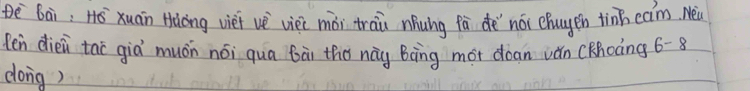 Đề bài : Hồ Xuân Hương viết về việc mời trầu nhưng là để nói chuyện tình cảm. Nêu
lên điều tác giả muốn nói qua bài thơ này bằng một đoạn văn (khoảng 6-8
dòng)